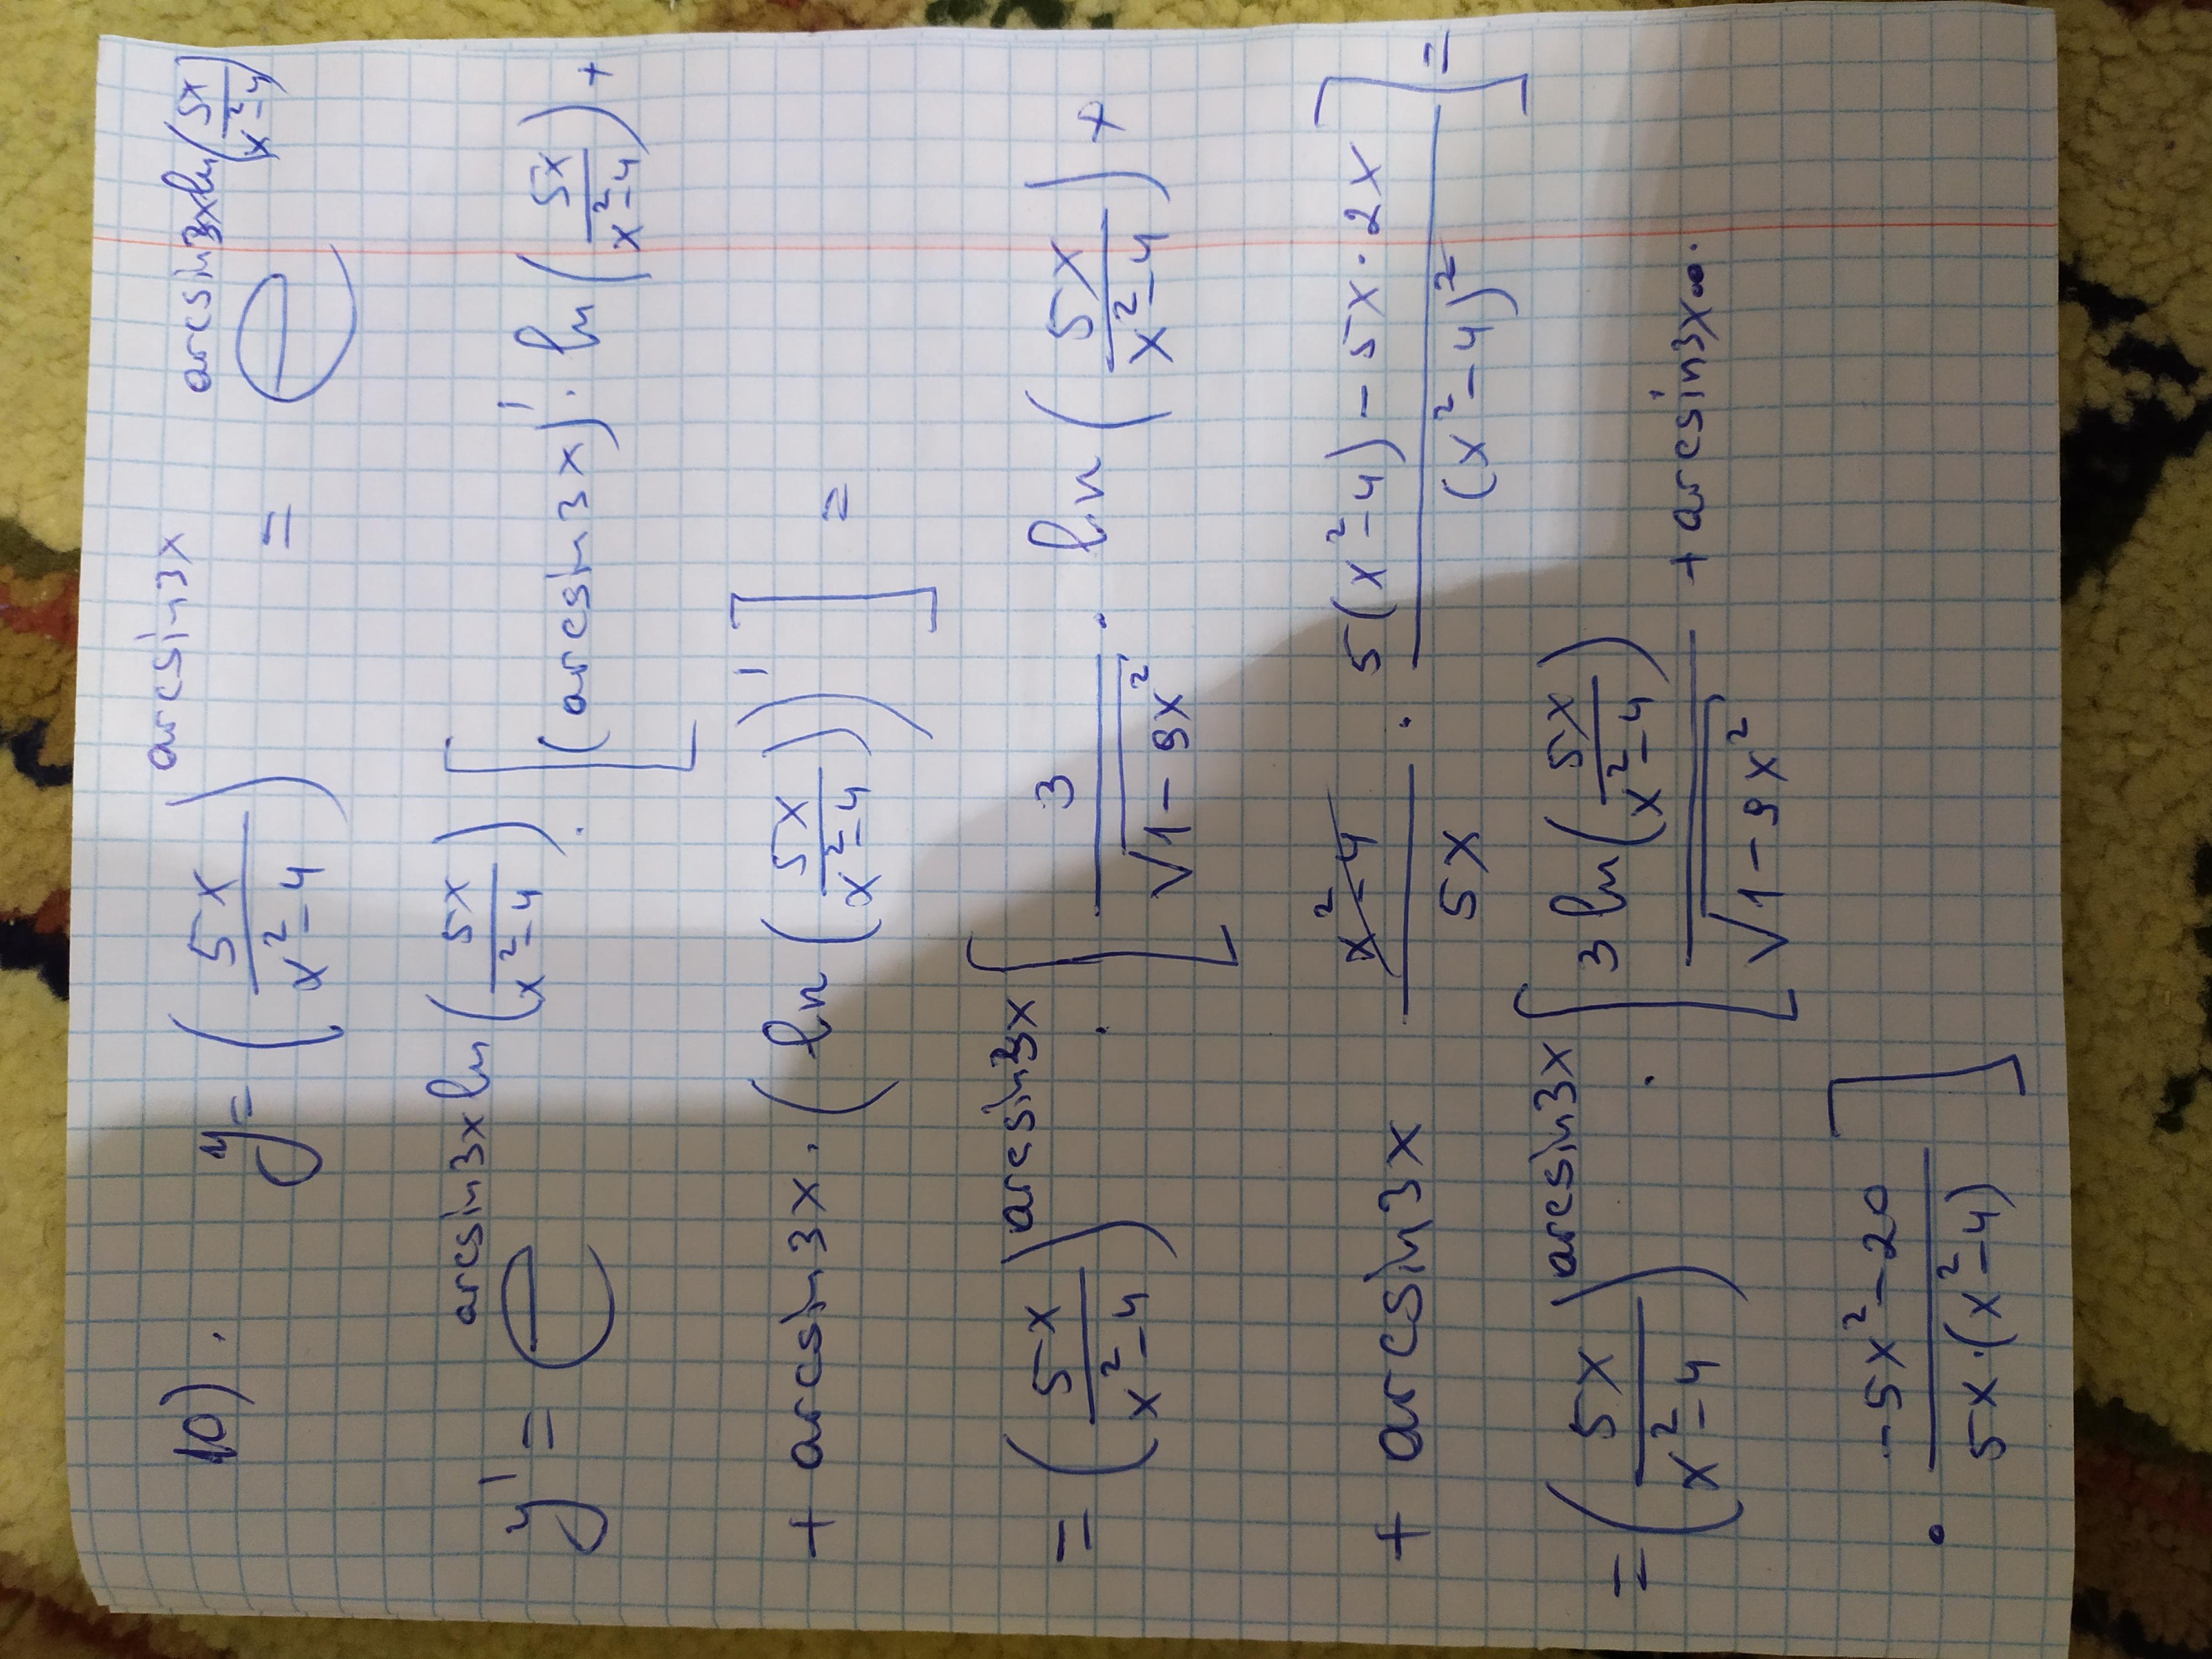 10). y = (5x / x² - 4)^arcsin3x = e^arcsin3x ln(5x / x² - 4)
y' = e^arcsin3x ln(5x / x² - 4) · [(arcsin3x)' · ln(5x / x² - 4) +
+ arcsin3x · (ln(5x / x² - 4))'] =
= (5x / x² - 4)^arcsin3x · [3 / √1 - 9x² · ln(5x / x² - 4) +
+ arcsin3x x² - 4 / 5x · 5(x² - 4) - 5x · 2x / (x² - 4)²] =
= (5x / x² - 4)^arcsin3x · [3 ln(5x / x² - 4) / √1 - 9x² + arcsin3x ·
· -5x² - 20 / 5x · (x² - 4)]